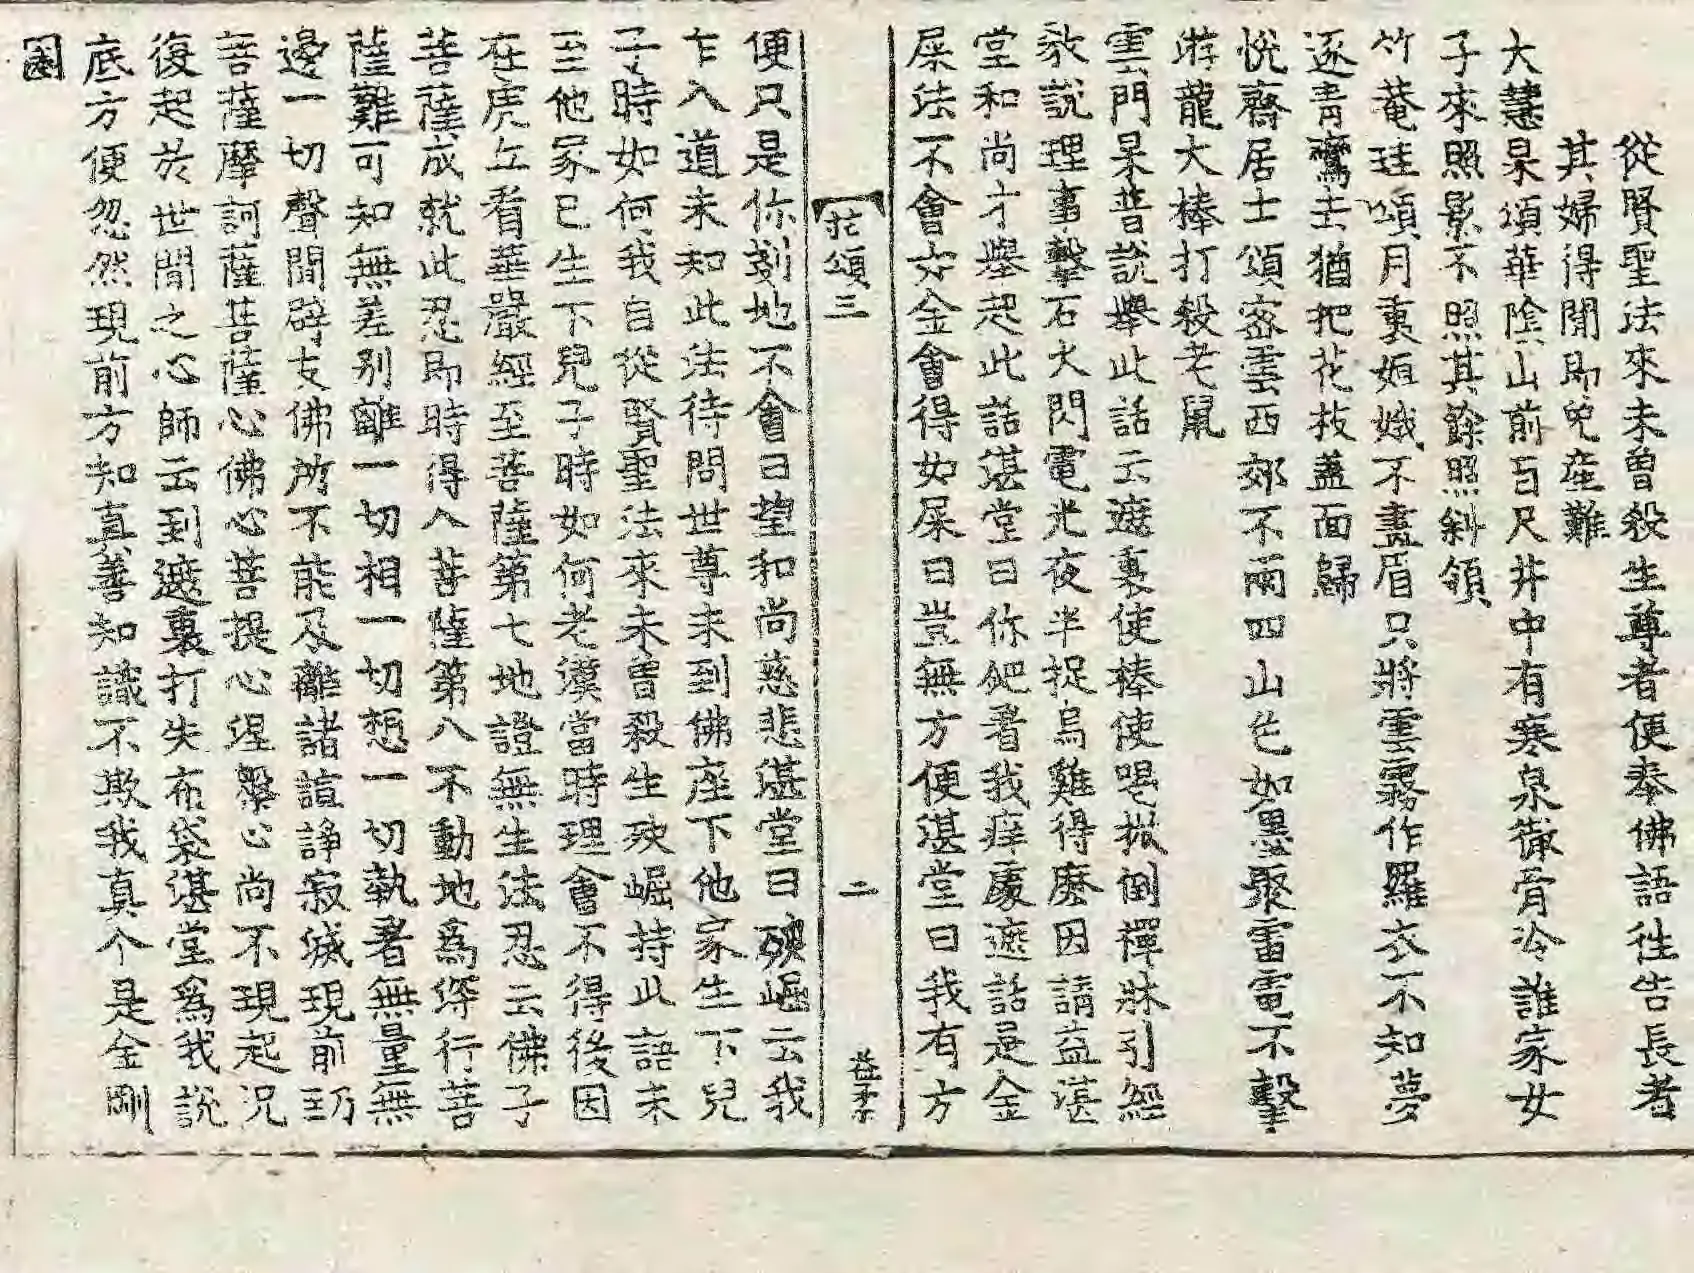 從賢聖法來未曾殺生尊者便奉佛語徃告長者
其婦得聞即免産難
大慧杲頌華陰山前百尺井中有寒泉徹骨冷誰家女
子來照影不照其餘照斜領
竹菴珪頌月裏姮娥不畫眉只將雲霧作羅衣不知夢
逐青鸞去猶把花枝盖面歸
悅齋居士頌密雲西郊不雨四山亡如墨聚雷電不擊
游龍大棒打殺老鼠
雲門杲普説擧此話云遮裏使棒使喝掀倒禪牀引經
敎説理事擊石火閃電光夜半捉烏雞得麽因請益湛
堂和尚才擧起此話湛堂曰你爬著我痒處遮話是金
屎法不會如金會得如屎曰豈無方便湛堂曰我有方
拈頌三
二
便只是你剗地不會曰望和尚慈悲湛堂曰殃崛云我
乍入道未知此法待問世尊未到佛座下他家生下兒
子時如何我自從賢聖法來未曾殺生殃崛持此語未
至他家已生下兒子時如何老漢當時理會不得後因
在虎丘看華嚴經至菩薩第七地證無生法忍云佛子
菩薩成就此忍即時得入菩薩第八不動地爲深行菩
薩難可知無差别離一切相一切想一切執著無量無
邊一切聲聞辟支佛所不能及離諸諠諍寂滅現前至乃
菩薩摩訶薩菩薩心佛心菩提心涅槃心尚不現起况
復起於世間之心師云到遮裏打失布袋湛堂爲我説
底方便忽然現前方知真善知識不欺我真个是金剛
圈